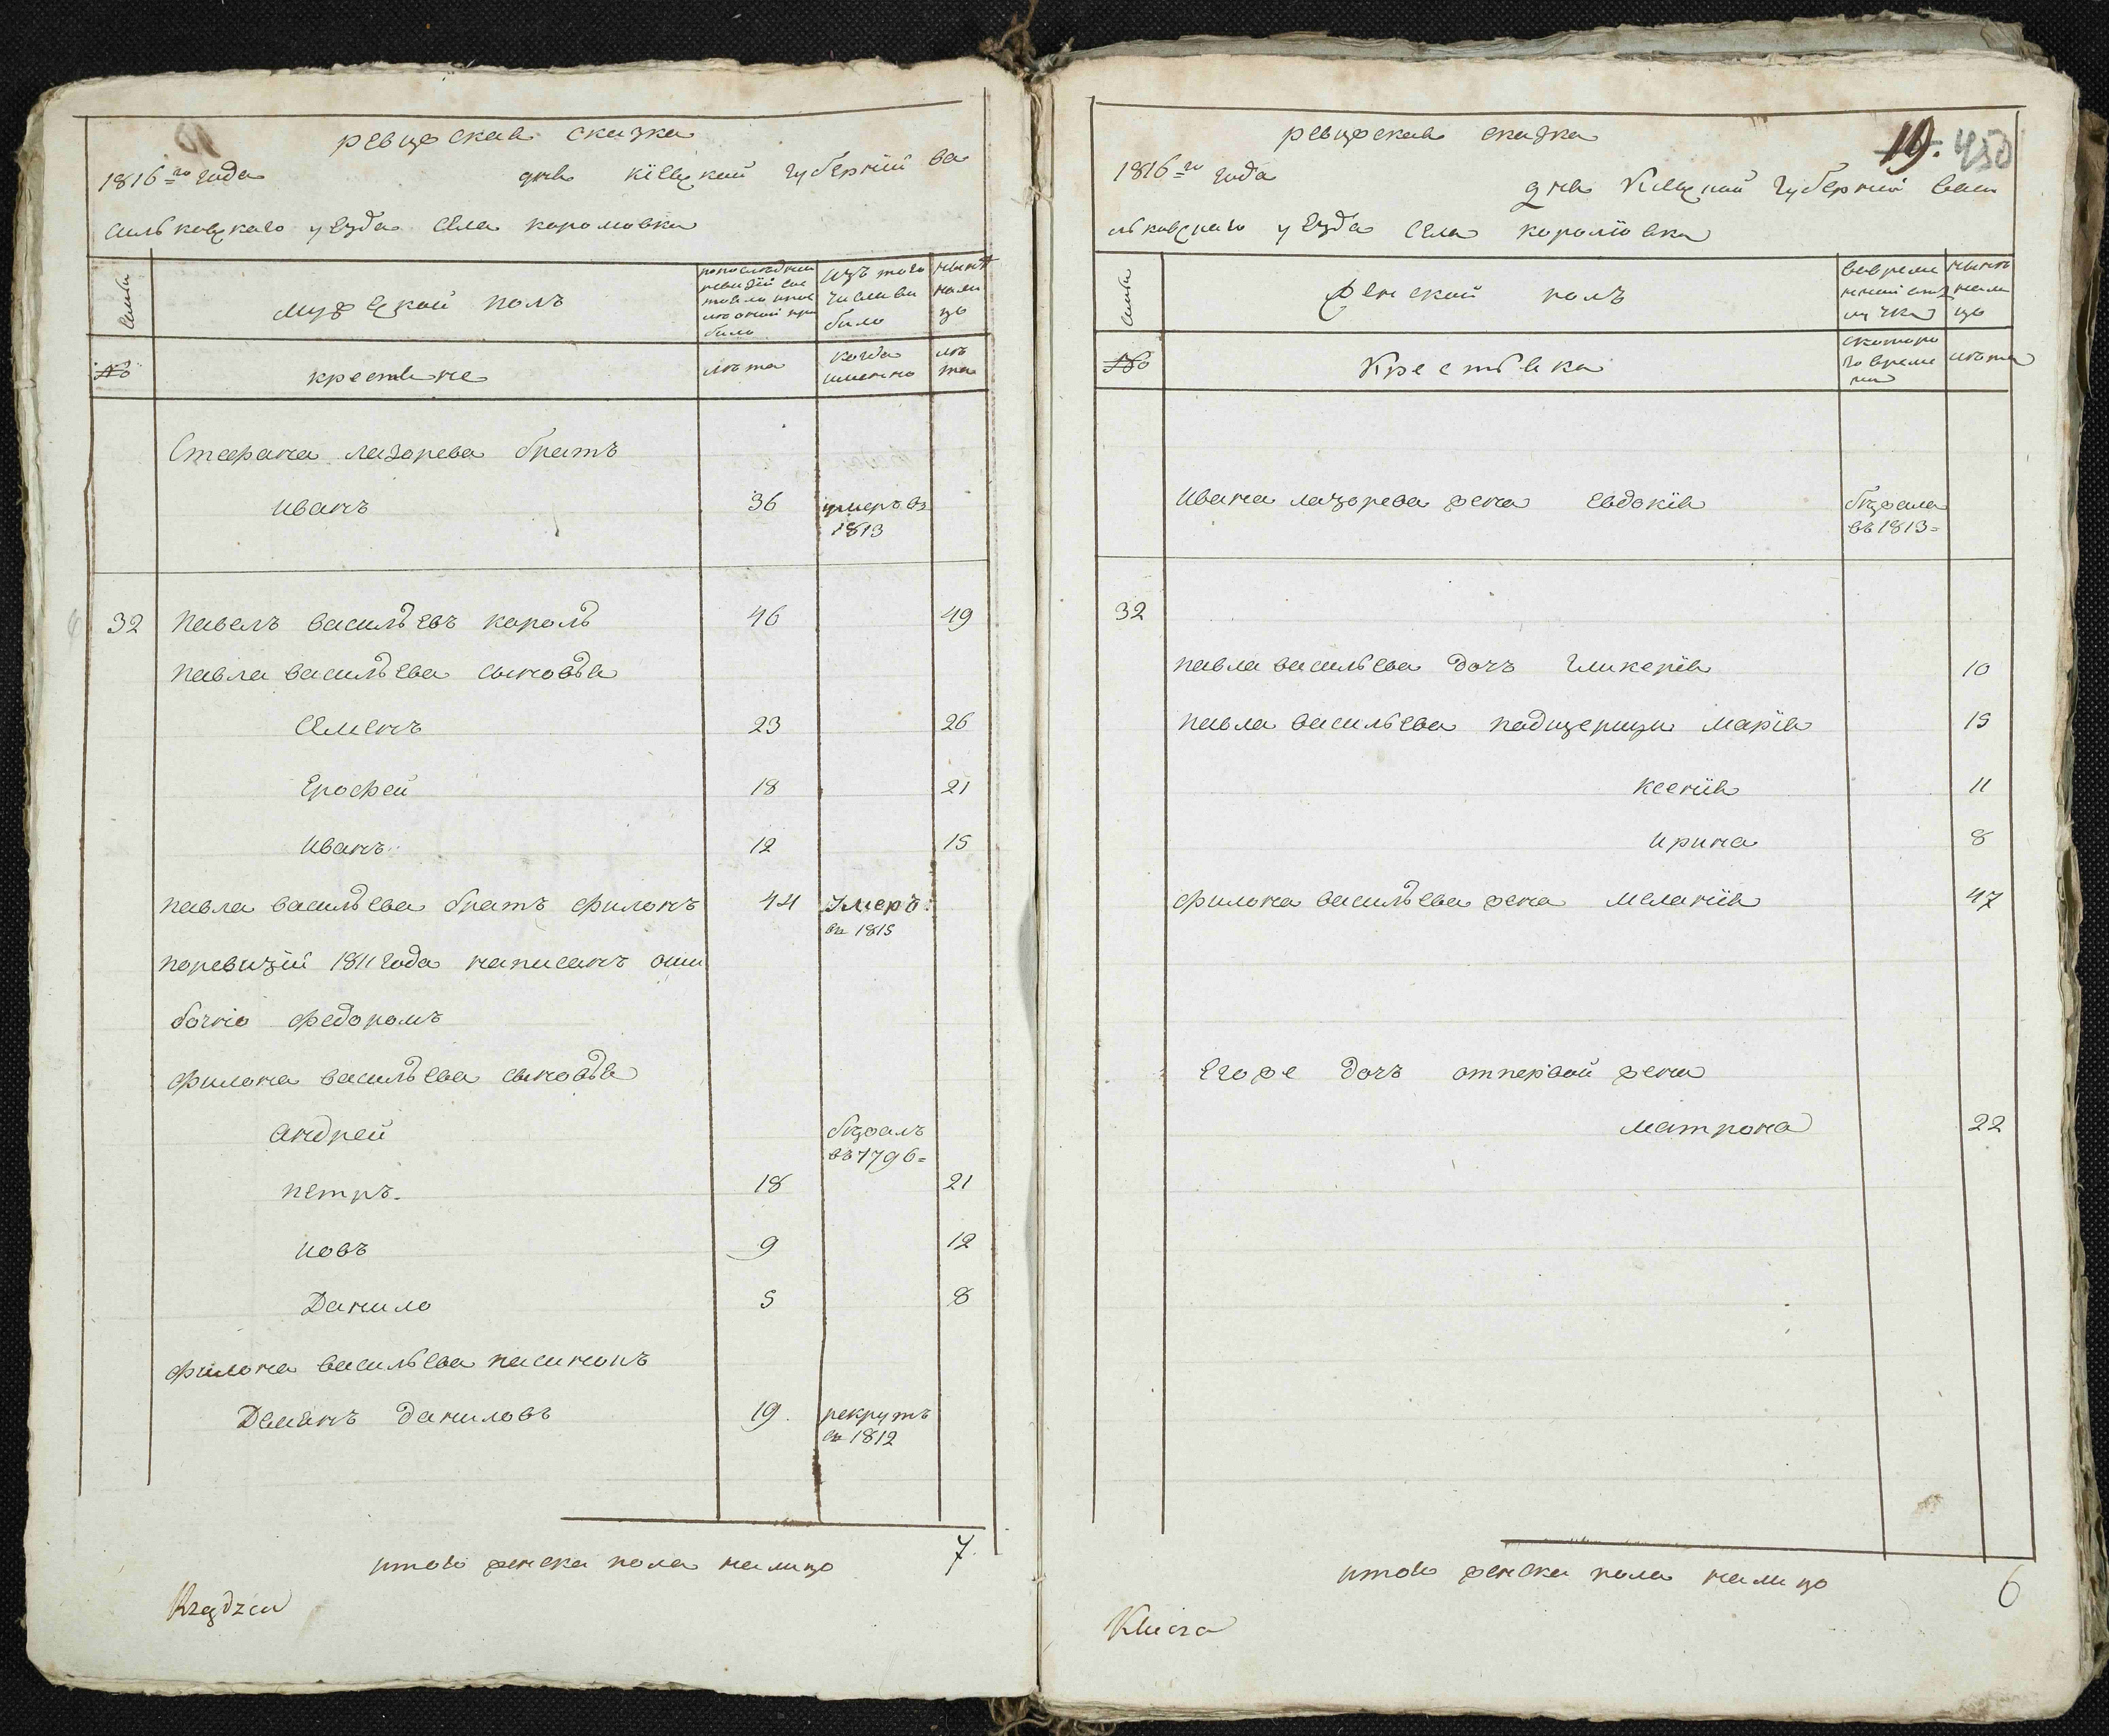 ревизская сказка
1816го года дня кіевской губерніи ва
сильковского уезда села королювки
семьи
мужеской полъ
по последней
ревизіи сос
тояло и пос
ле оной при
было
изъ того
числа вы
было
ныне
нали
цо
№
крестьяне
лета
когда
именно
ле
та
Стефана лазорева братъ
иванъ 36 умеръ въ
1813
32 павелъ васильевъ король 46 49
павла васильева сыновья
семенъ 23 26
Ерофей 18 21
иванъ 12 15
павла васильева братъ филонъ 44 умеръ
въ 1815
поревизіи 1811 года написанъ оши
бочно федоромъ
филона васильева сыновья
андрей бежалъ
въ 1796
петръ 18 21
иовъ 9 12
Данило 5 8
филона васильева пасинокъ
Демянъ даниловъ 19 рекрутъ
въ 1812
итого женска пола налицо 7
Krzędzia
ревизская сказка
19. 450
1816го года дня Кіевской губерніи васи
льковского уезда села королювки
семьи
женской полъ
вовреме
нной отл
учки
ныне
нали
цо
№
Крестьянка
скоторо
го време
ни
лета
ивана лазорева жена евдокія бежала
въ 1813
32
павла васильева дочь гликерія 10
павла васильева падщерици марія 15
ксенія 11
ирина 8
филона васильева жена меланія 47
Егоже дочь отпервой жены
матрона 22
итого женска пола налицо 6